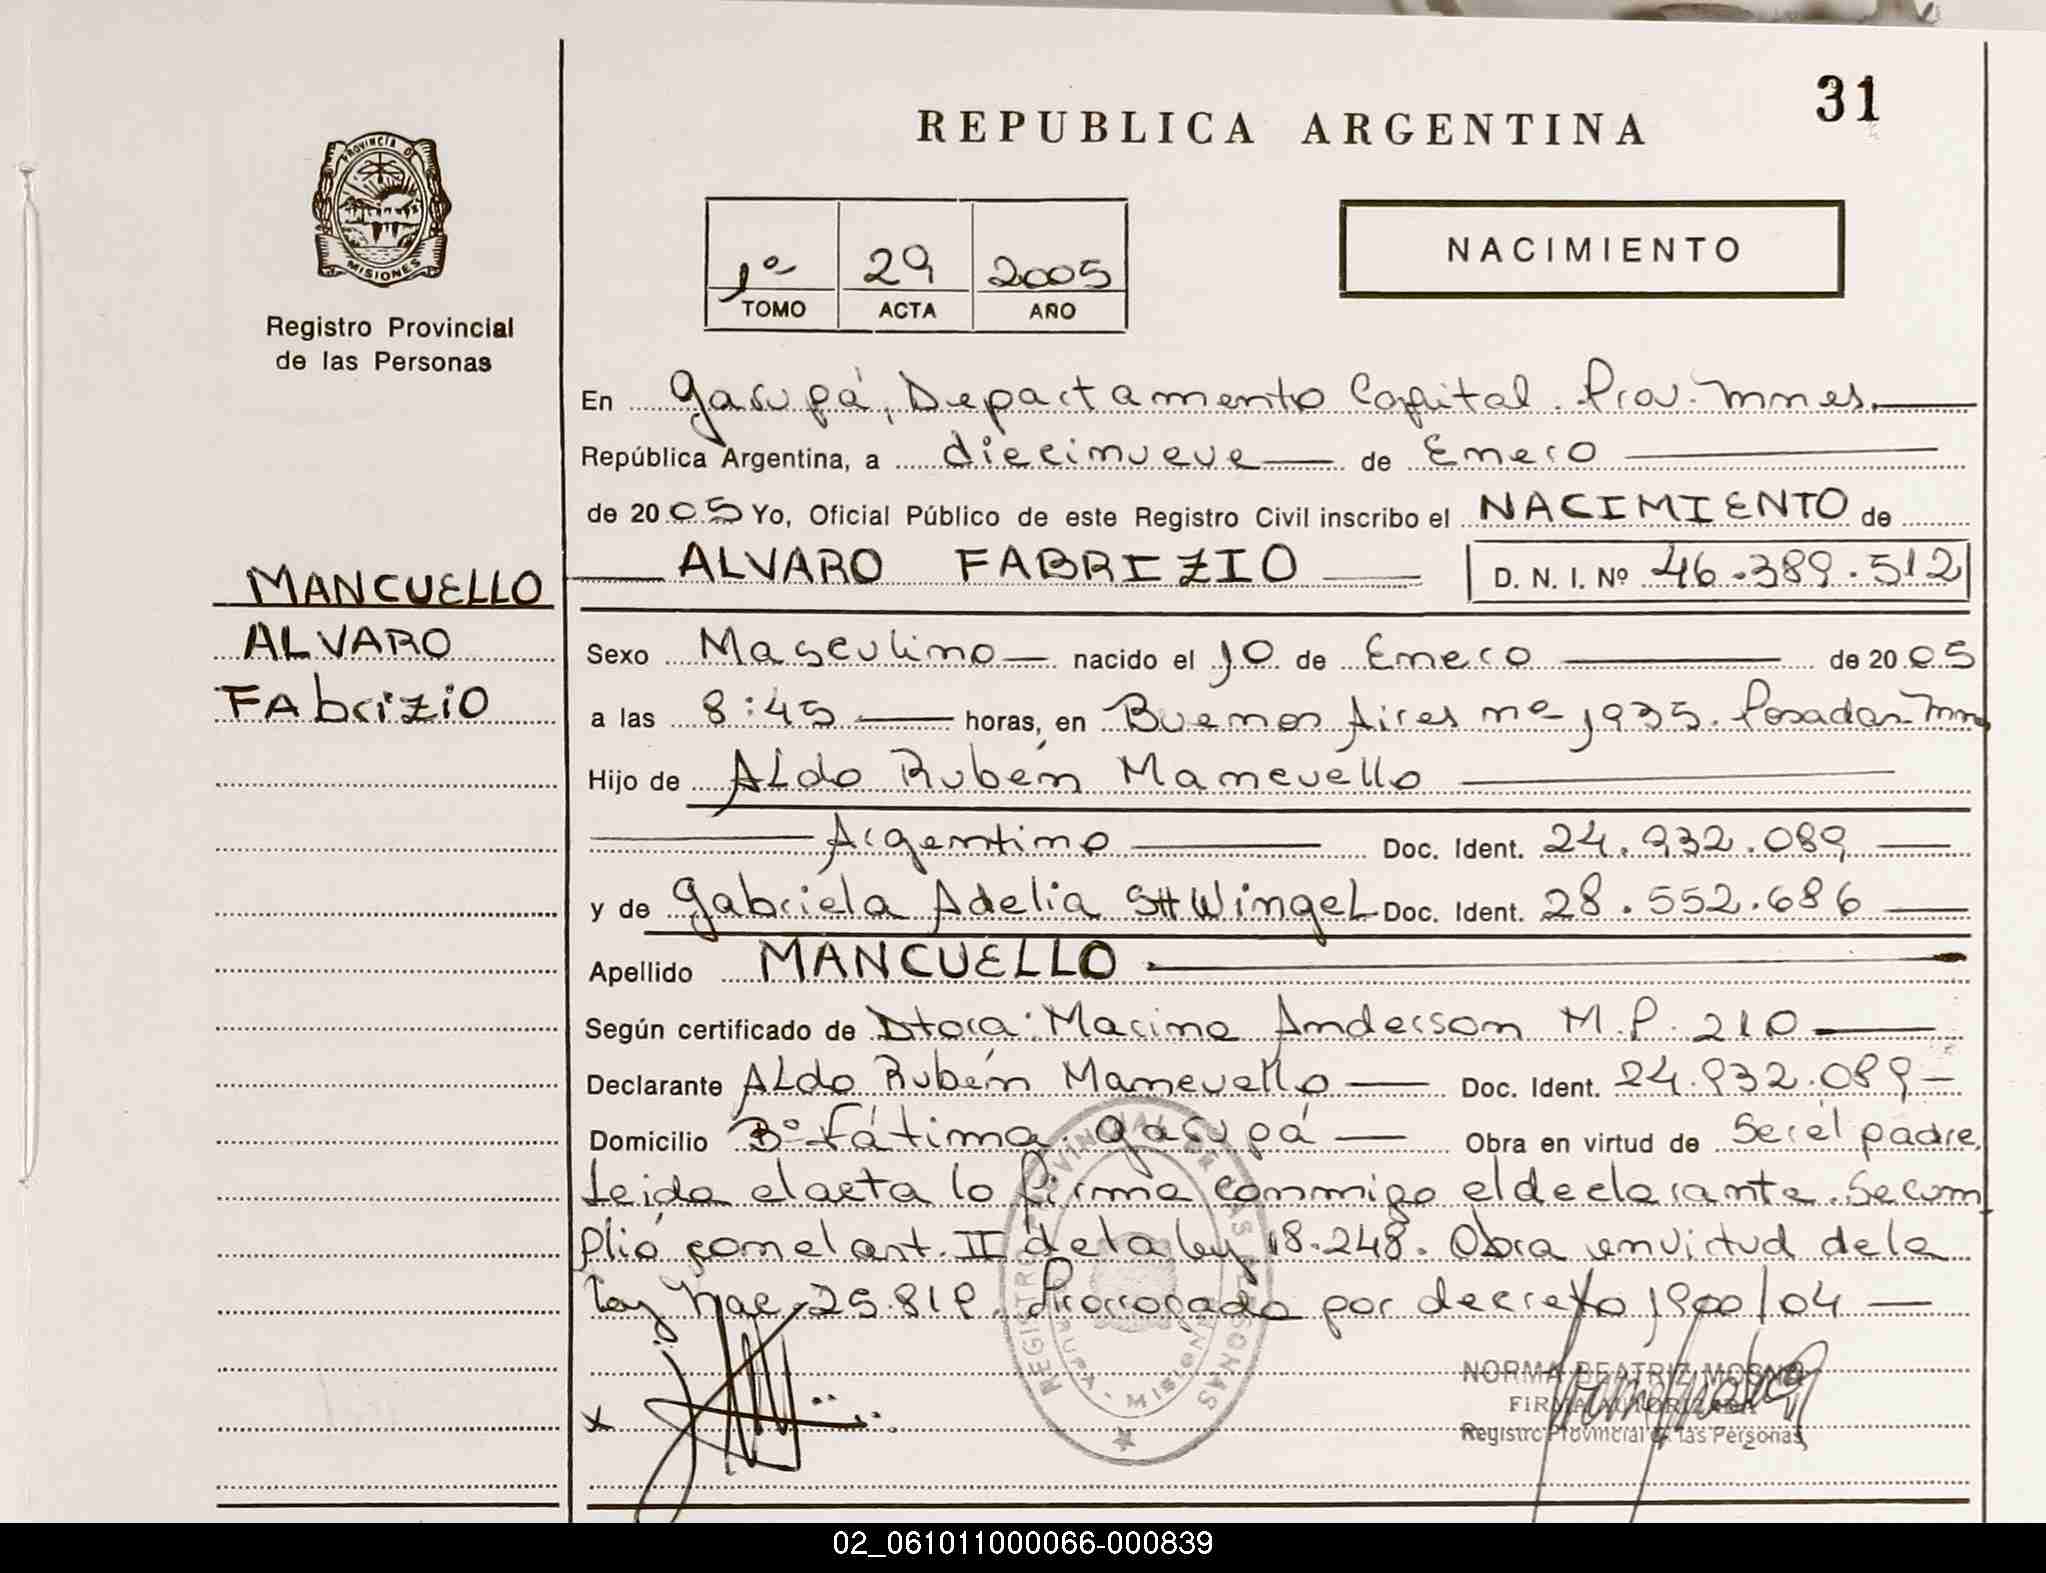 31
REPUBLICA ARGENTINA
PROVINCIA DE
MISIONES
Registro Provincial
de las Personas
NACIMIENTO
1º 29 2005
TOMO ACTA AÑO
En Garupá, Departamento Capital. Prov. Mnes.
República Argentina, a diecinueve de Enero
de 2005 Yo, Oficial Público de este Registro Civil inscribo el NACIMIENTO de
ALVARO FABRIZIO D. N. I. Nº 46.389.512
MANCUELLO
ALVARO
FAbrizio
Sexo Masculino nacido el 10 de Enero de 2005
a las 8:45 horas, en Buenos Aires nº 1935. Posadas Mn
Hijo de Aldo Rubén Mancuello
Argentino Doc. Ident. 24.932.089
y de Gabriela Adelia SHWingeL Doc. Ident. 28.552.686
Apellido MANCUELLO
Según certificado de Dtora: Marina Anderson M.P. 210
Declarante Aldo Rubén Mancuello Doc. Ident. 24.932.089
Domicilio Bº Fátima Garupá Obra en virtud de Ser el padre.
Leida el acta lo firma conmigo el declarante. Se cum
plió con el art. II de la ley 18.248. Obra en virtud de la
Ley Nac. 25.819. Prorrogada por decreto 1900/04
REGISTRO PROVINCIAL DE LAS PERSONAS
GARUPA - MISIONES
x
NORMA BEATRIZ
FIRMA AUTORIZADA
Registro Provincial de las Personas
02_061011000066-000839